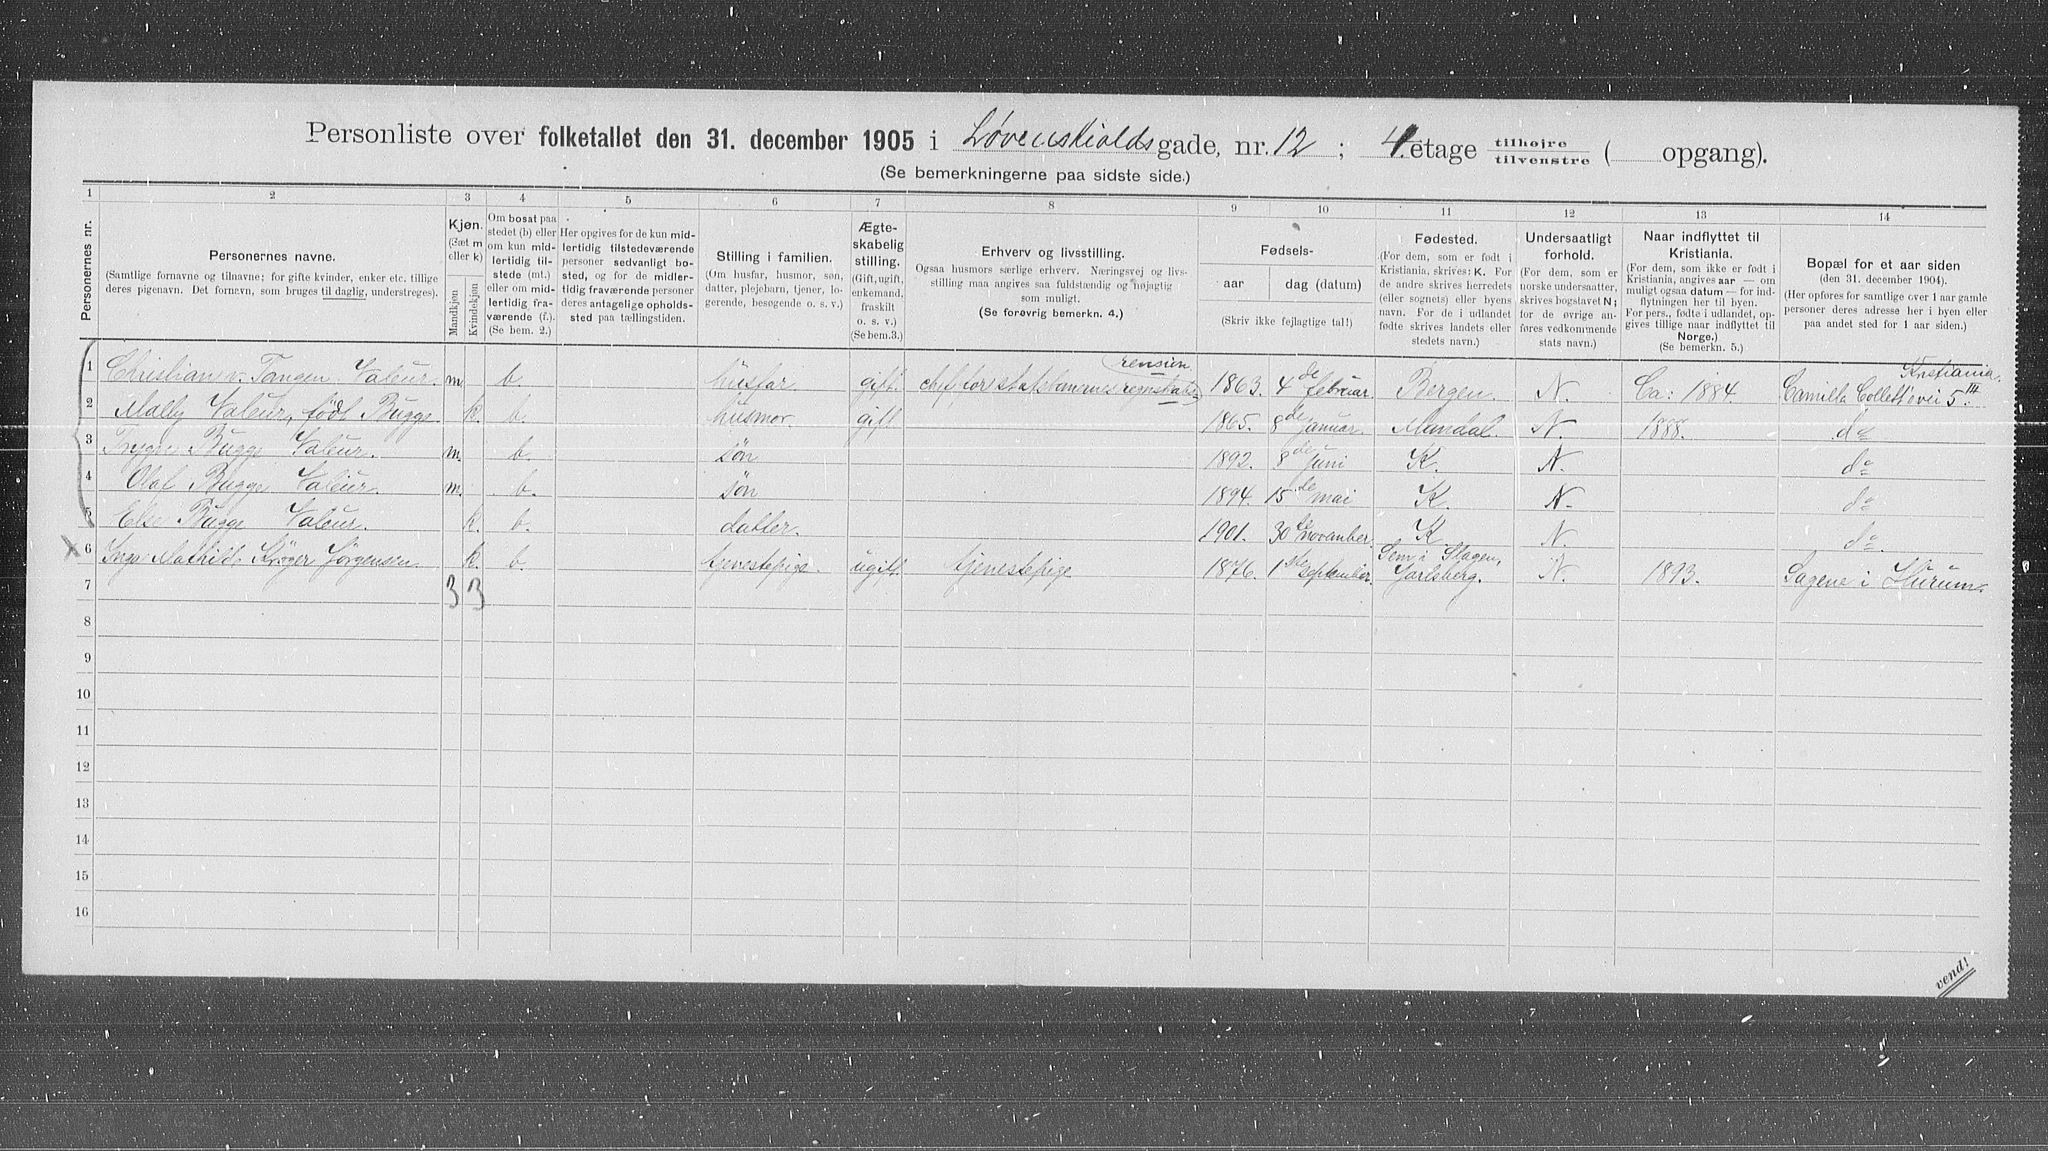 Personliste over folketallet den 31. december 1905 i Løvenskiolds gade, nr. 12 ; 4. etage tilhøjre tilvenstre ( opgang).
(Se bemerkningerne paa sidste side.)
1 2 3 4 5 6 7 8 9 10 11 12 13 14
Personernes nr.
Personernes navne.
(Samtlige fornavne og tilnavne; for gifte kvinder, enker etc. tillige
deres pigenavn. Det fornavn, som bruges til daglig, understreges).
Kjøn.
(Sæt m
eller k)
Mandkjøn
Kvindekjøn
Om bosat paa
stedet (b) eller
om kun mid-
lertidig til-
stede (mt.)
eller om mid-
lertidig fra-
værende (f.).
(Se bem. 2.)
Her opgives for de kun mid-
lertidig tilstedeværende
personer sedvanligt bo-
sted, og for de midler-
tidig fraværende personer
deres antagelige opholds-
sted paa tællingstiden.
Stilling i familien.
(Om husfar, husmor, søn,
datter, plejebarn, tjener, lo-
gerende, besøgende o. s. v.)
Ægte-
skabelig
stilling.
(Gift, ugift,
enkemand,
fraskilt
o. s. v.)
(Se bem.3.)
Erhverv og livsstilling.
Ogsaa husmors særlige erhverv. Næringsvej og livs-
stilling maa angives saa fuldstændig og nøjagtig
som muligt.
(Se forøvrig bemerkn. 4.)
Fødsels-
aar
dag (datum)
(Skriv ikke fejlagtige tal!)
Fødested.
(For dem, som er født i
Kristiania, skrives: K. For
de andre skrives herredets
(eller sognets) eller byens
navn. For de i udlandet
fødte skrives landets eller
stedets navn.)
Undersaatligt
forhold.
(For dem, som er
norske undersaatter,
skrives bogstavet N;
for de øvrige an-
føres vedkommende
stats navn.)
Naar indflyttet til
Kristiania.
(For dem, som ikke er født i
Kristiania, angives aar — om
muligt ogsaa datum — for ind-
flytningen her til byen.
For pers., fødte i udlandet, op-
gives tillige naar indflyttet til
Norge.)
(Se bemerkn. 5.)
Bopæl for et aar siden
(den 31. december 1904).
(Her opføres for samtlige over 1 aar gamle
personer deres adresse her i byen eller
paa andet sted for 1 aar siden.)
1 Christian v. Tangen Valeur. m. b. husfar gift. chef for statsbanernes regnskabs rension 1863. 4de februar. Bergen. N. Ca: 1884 Camilla Colletts vei 5 III Kristiania.
2 Mally Valeur, født Bugge k. b. husmor. gift 1865. 8de januar. Mandal. N. 1888. do
3 Trygve Bugge Valeur. m. b. søn 1892. 8de juni K. N. do
4 Olaf Bugge Valeur. m. b. søn 1894. 15de mai K. N. do
5 Else Bugge Valeur. k. b. datter. 1901. 30te november. K. N do.
X 6 Inga Mathilde Krøger Jørgensen k. b. tjenestepige. ugift. tjenestepige 1876. 1ste september. Sem i Slagen, Jarlsberg. N. 1893. Sagene i Hurum.
7 3 3
8
9
10
11
12
13
14
15
16
vend!